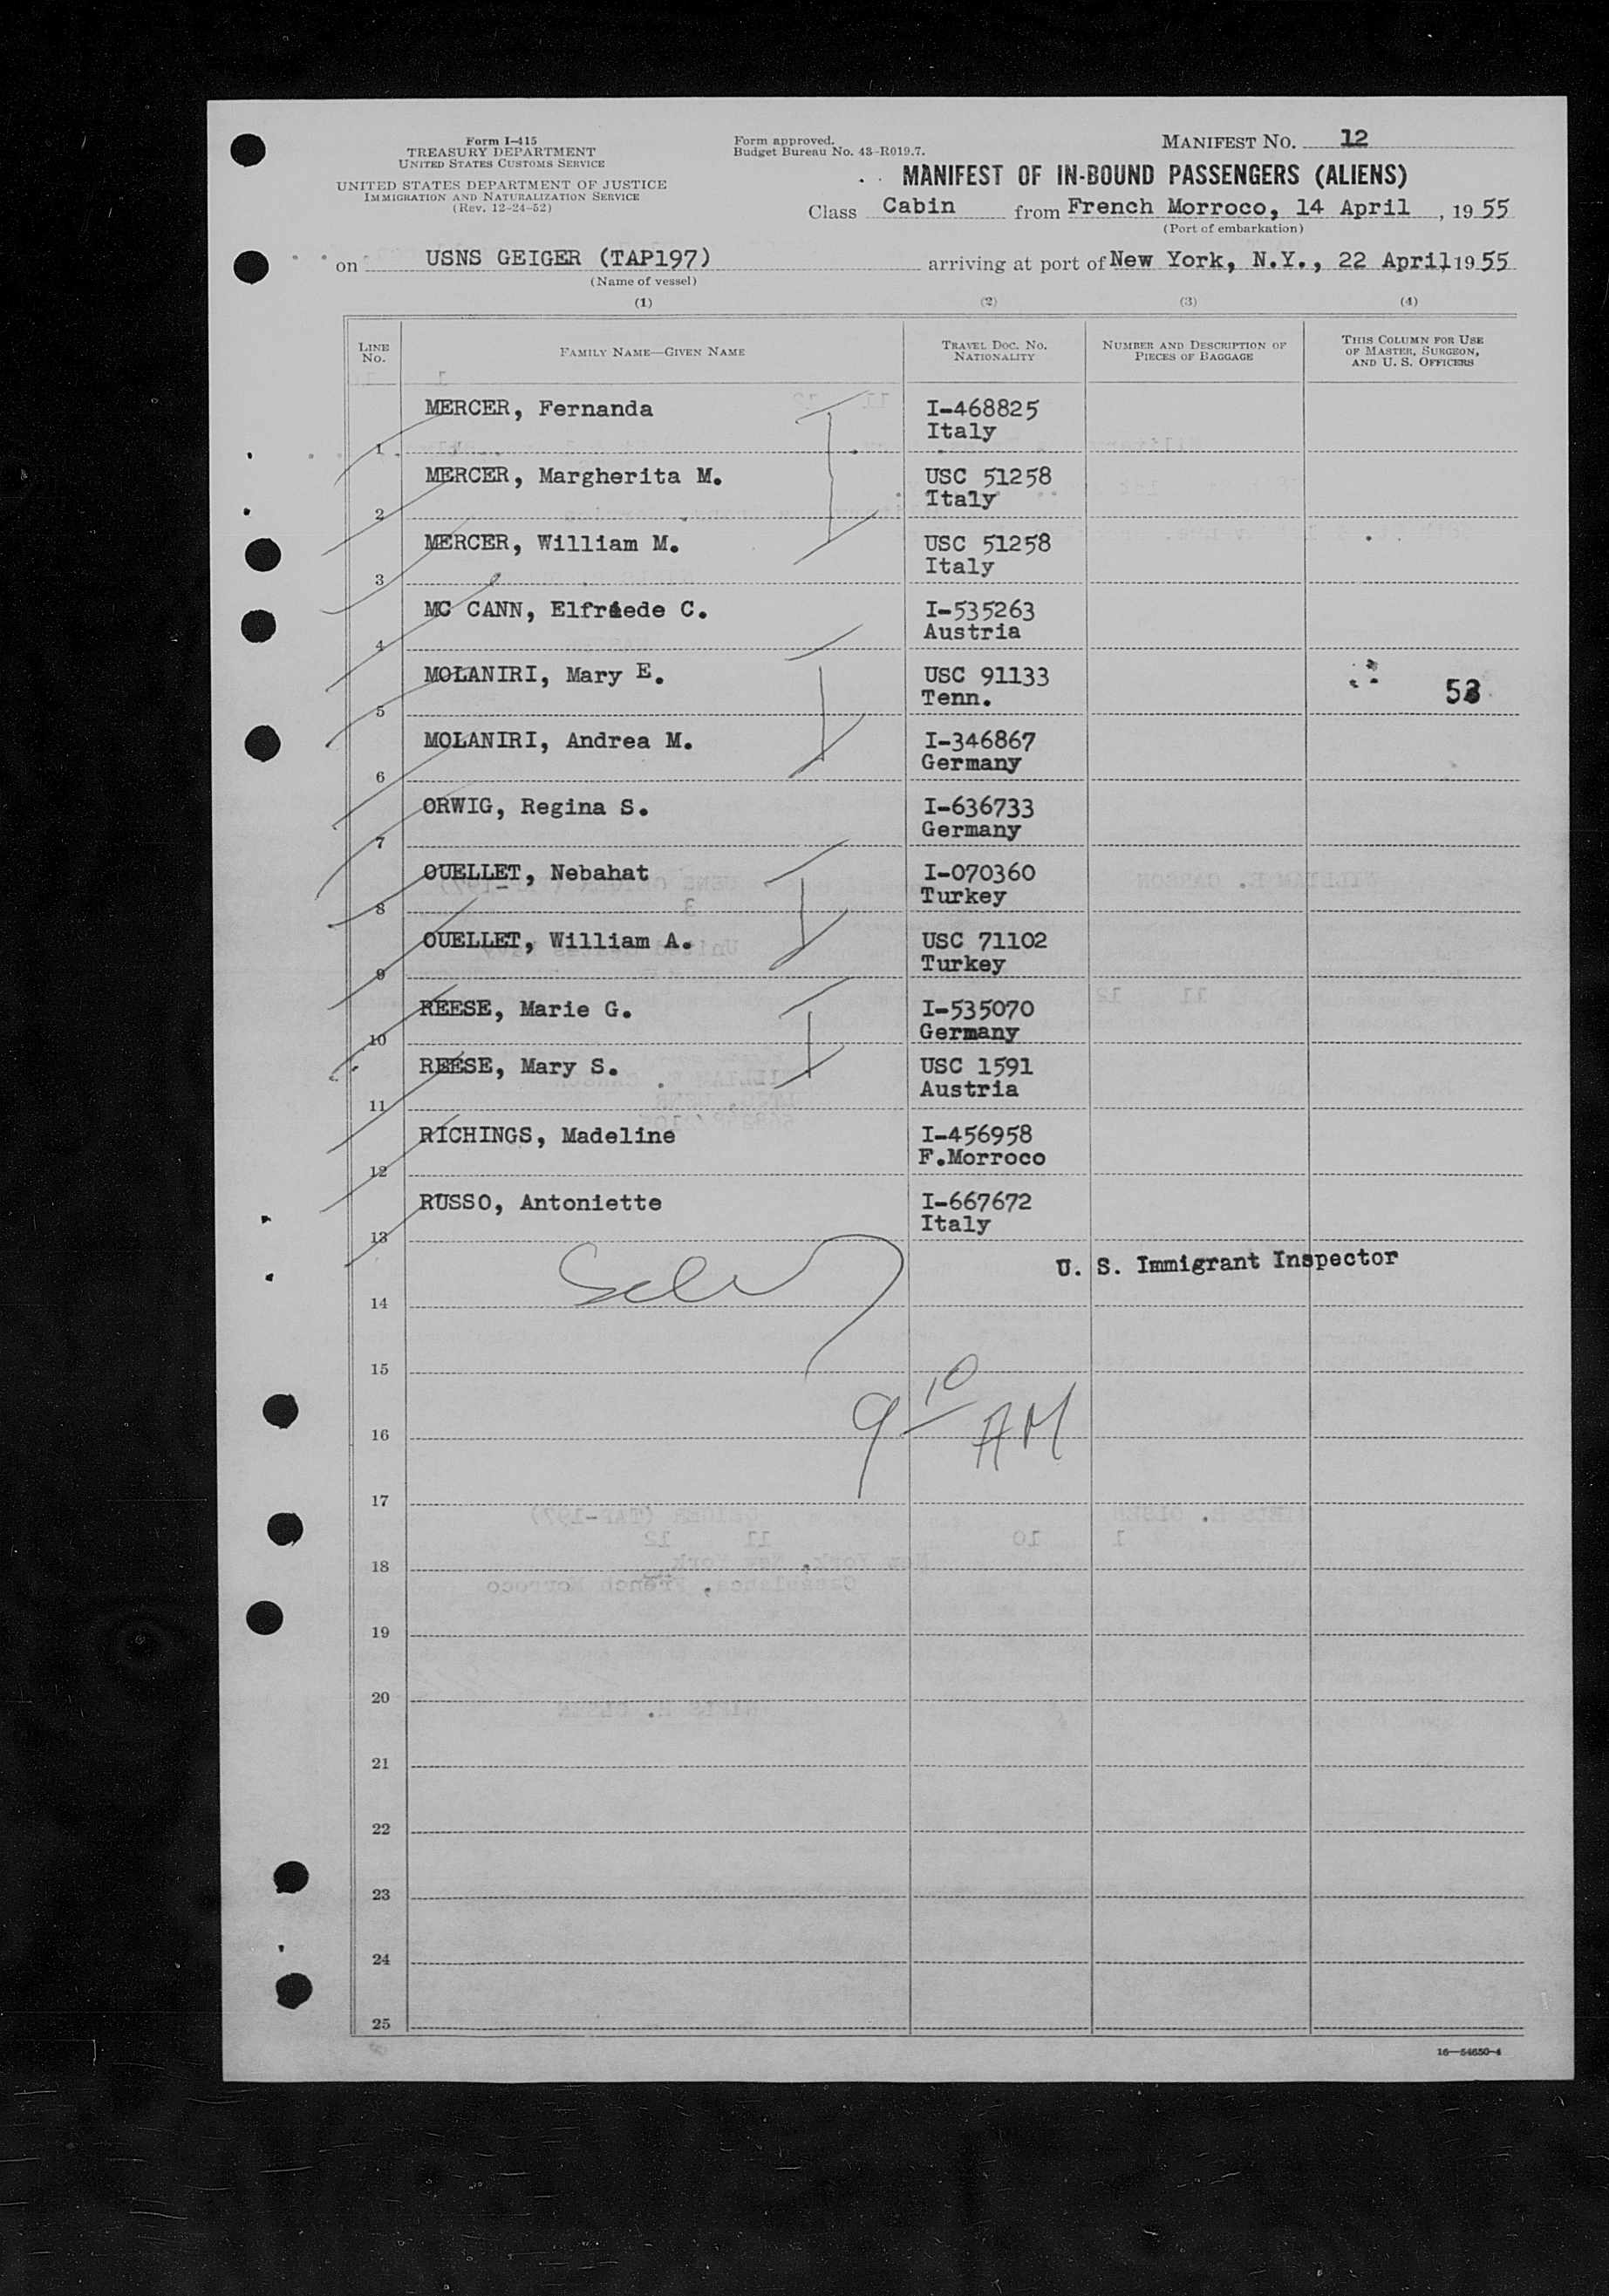 Form I-415
TREASURY DEPARTMENT
UNITED STATES CUSTOMS SERVICE
UNITED STATES DEPARTMENT OF JUSTICE
IMMIGRATION AND NATURALIZATION SERVICE
(Rev. 12-24-52)
Form approved.
Budget Bureau No. 43-R019.7.
MANIFEST NO. 12
MANIFEST OF IN-BOUND PASSENGERS (ALIENS)
Class Cabin from French Morroco, 14 April, 1955
(Port of embarkation)
on USNS GEIGER (TAP197) arriving at port of New York, N.Y., 22 April, 1955
(Name of vessel)
(1) (2) (3) (4)
LINE NO. FAMILY NAME—GIVEN NAME TRAVEL DOC. NO. NATIONALITY NUMBER AND DESCRIPTION OF PIECES OF BAGGAGE THIS COLUMN FOR USE OF MASTER, SURGEON, AND U. S. OFFICERS
MERCER, Fernanda I-468825
1 Italy
MERCER, Margherita M. USC 51258
2 Italy
MERCER, William M. USC 51258
3 Italy
MC CANN, Elfriede C. I-535263
4 Austria
MOLANIRI, Mary E. USC 91133
5 Tenn. 53
MOLANIRI, Andrea M. I-346867
6 Germany
ORWIG, Regina S. I-636733
7 Germany
OUELLET, Nebahat I-070360
8 Turkey
OUELLET, William A. USC 71102
9 Turkey
REESE, Marie G. I-535070
10 Germany
REESE, Mary S. USC 1591
11 Austria
RICHINGS, Madeline I-456958
12 F.Morroco
RUSSO, Antoniette I-667672
13 Italy
U. S. Immigrant Inspector
14
15
9 10 AM
16
17
18
19
20
21
22
23
24
25
16—54650-4